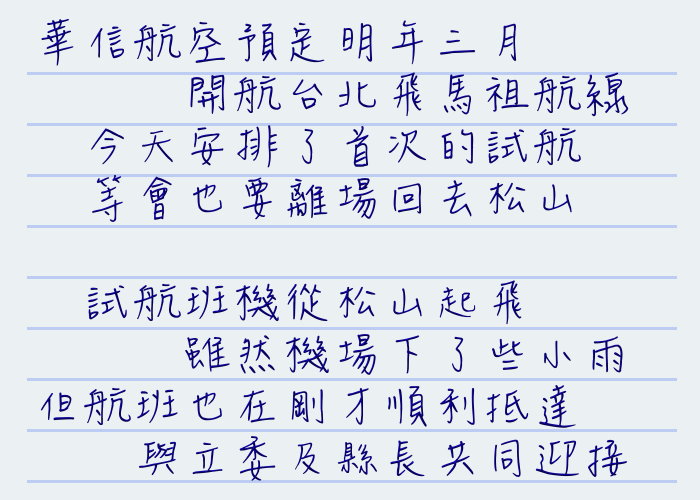 華信航空預定明年三月
開航台北飛馬祖航線
今天安排了首次的試航
等會也要離場回去松山
試航班機從松山起飛
雖然機場下了些小雨
但航班也在剛才順利抵達
與立委及縣長共同迎接